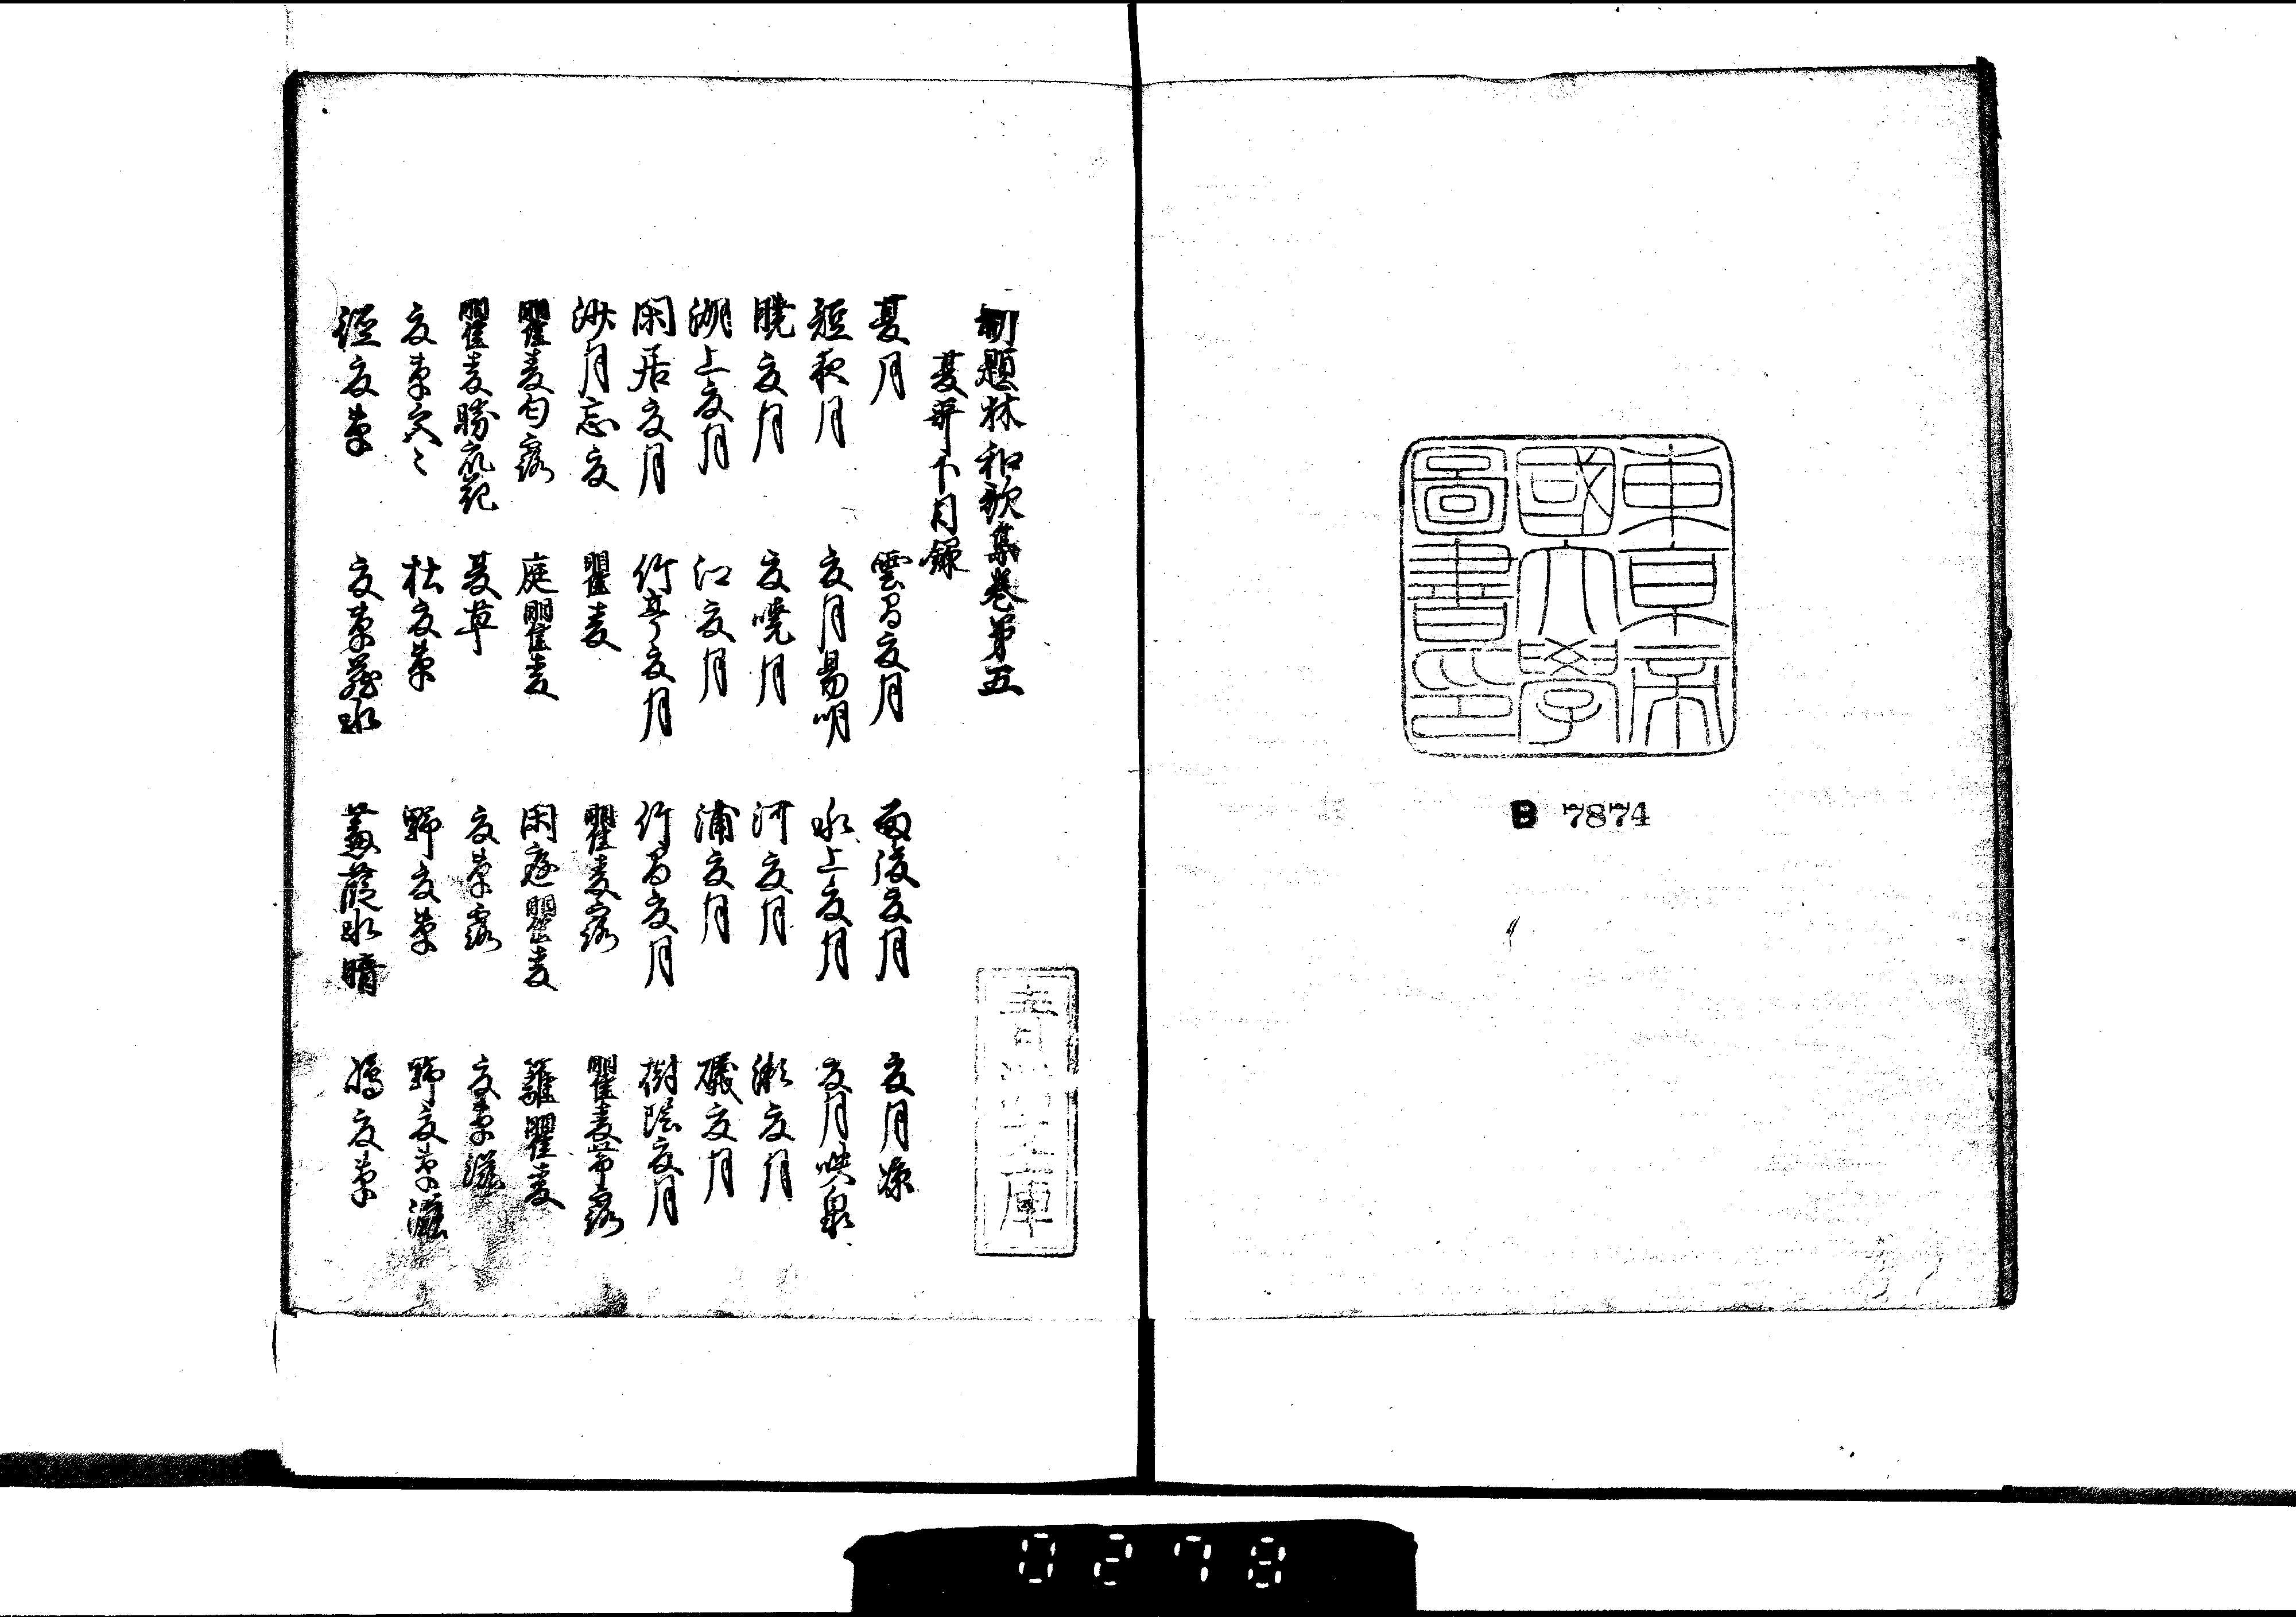 東京帝
國大學
圖書印
B 7874
類題林和歌集巻第五
夏部下目録
夏月 雲間夏月 雨後夏月 夏月凉
短夜月 夏月易明 水上夏月 夏月映泉
暁夏月 夏暁月 河夏月 瀬夏月
湖上夏月 江夏月 浦夏月 磯夏月
閑居夏月 竹亭夏月 竹間夏月 樹陰夏月
泳月忘夏 瞿麦 瞿麦露 瞿麦帯露
瞿麦匂露 庭瞿麦 閑庭瞿麦 籬瞿麦
瞿麦勝衆花 夏草 夏草露 夏草滋
夏草 杜夏草 野夏草 野夏草滋
径夏草 夏草蔵水 水暗 夏草
庫
0278